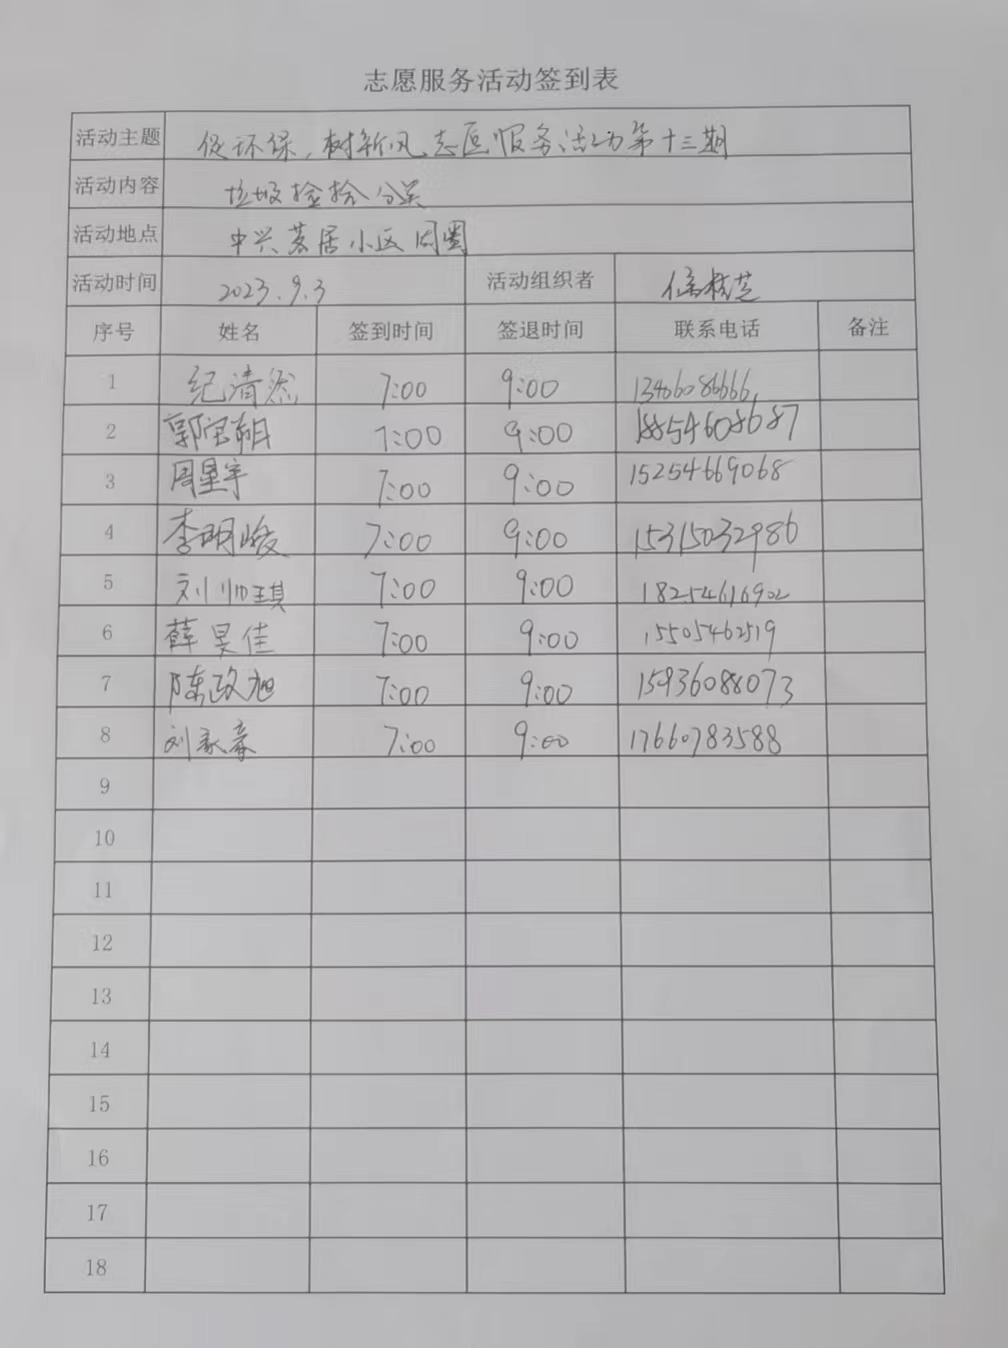 志愿服务活动签到表
活动主题 促环保,树新风志愿服务活动第十三期
活动内容 垃圾捡拾分类
活动地点 中兴 居小区周围
活动时间 2023.9.3 活动组织者
序号 姓名 签到时间 签退时间 联系电话 备注
1 纪清 7:00 9:00
2 郭 朝 7:00 9:00 18854608687
3 周星宇 7:00 9:00 15254669068
4 李明峻 7:00 9:00 15315032986
5 刘帅琪 7:00 9:00 18254616902
6 薛昊佳 7:00 9:00 15505462519
7 陈政旭 7:00 9:00 15936088073
8 刘 7:00 9:00 17660783588
9
10
11
12
13
14
15
16
17
18